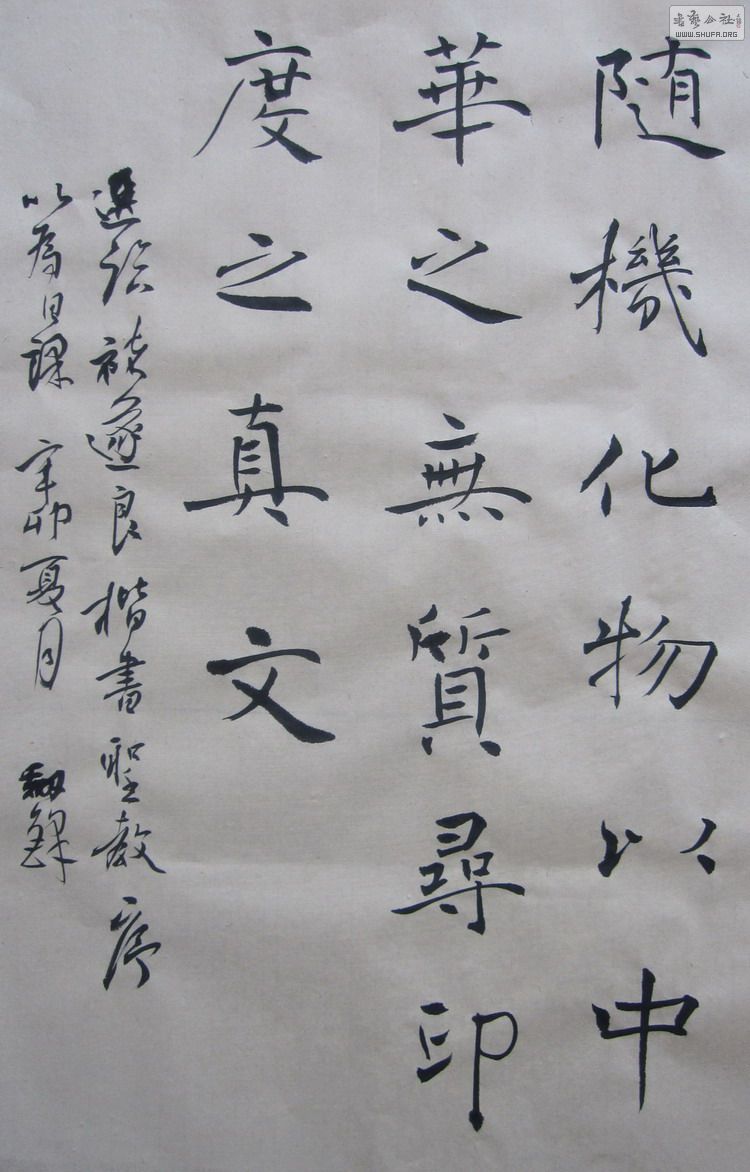 隨機化物以中
華之無質尋印
度之真文
選臨褚遂良楷書聖教序
以為日課 辛卯夏月
書藝公社
WWW.SHUFA.ORG